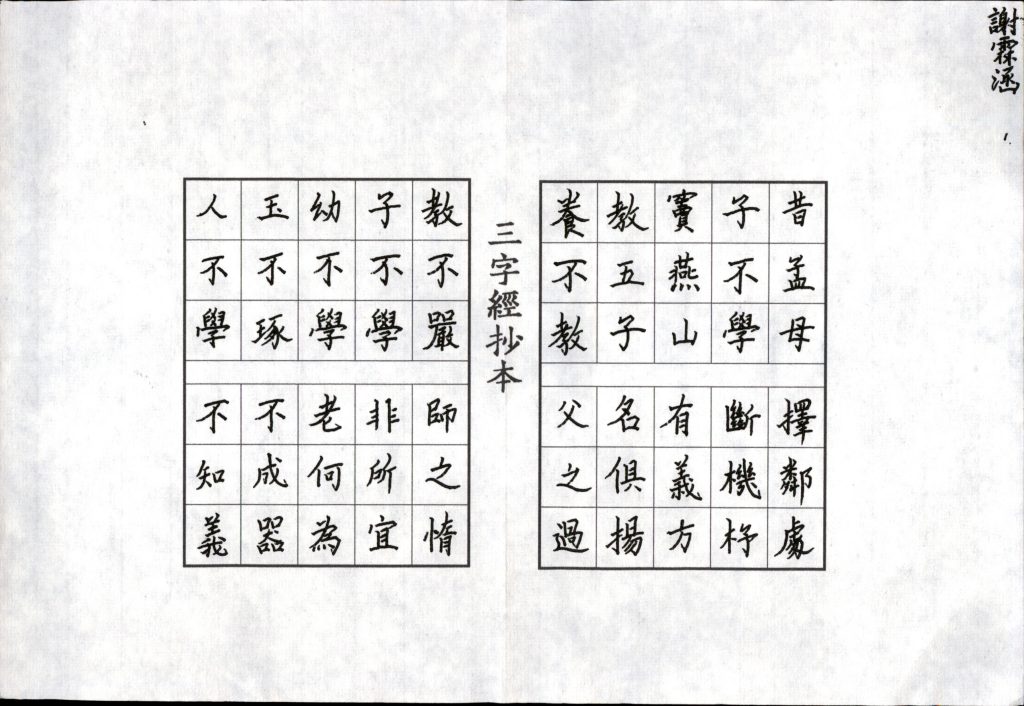 謝霖涵
昔孟母
擇鄰處
子不學
斷機杼
竇燕山
有義方
教五子
名俱揚
養不教
父之過
三字經抄本
教不嚴
師之惰
子不學
非所宜
幼不學
老何為
玉不琢
不成器
人不學
不知義